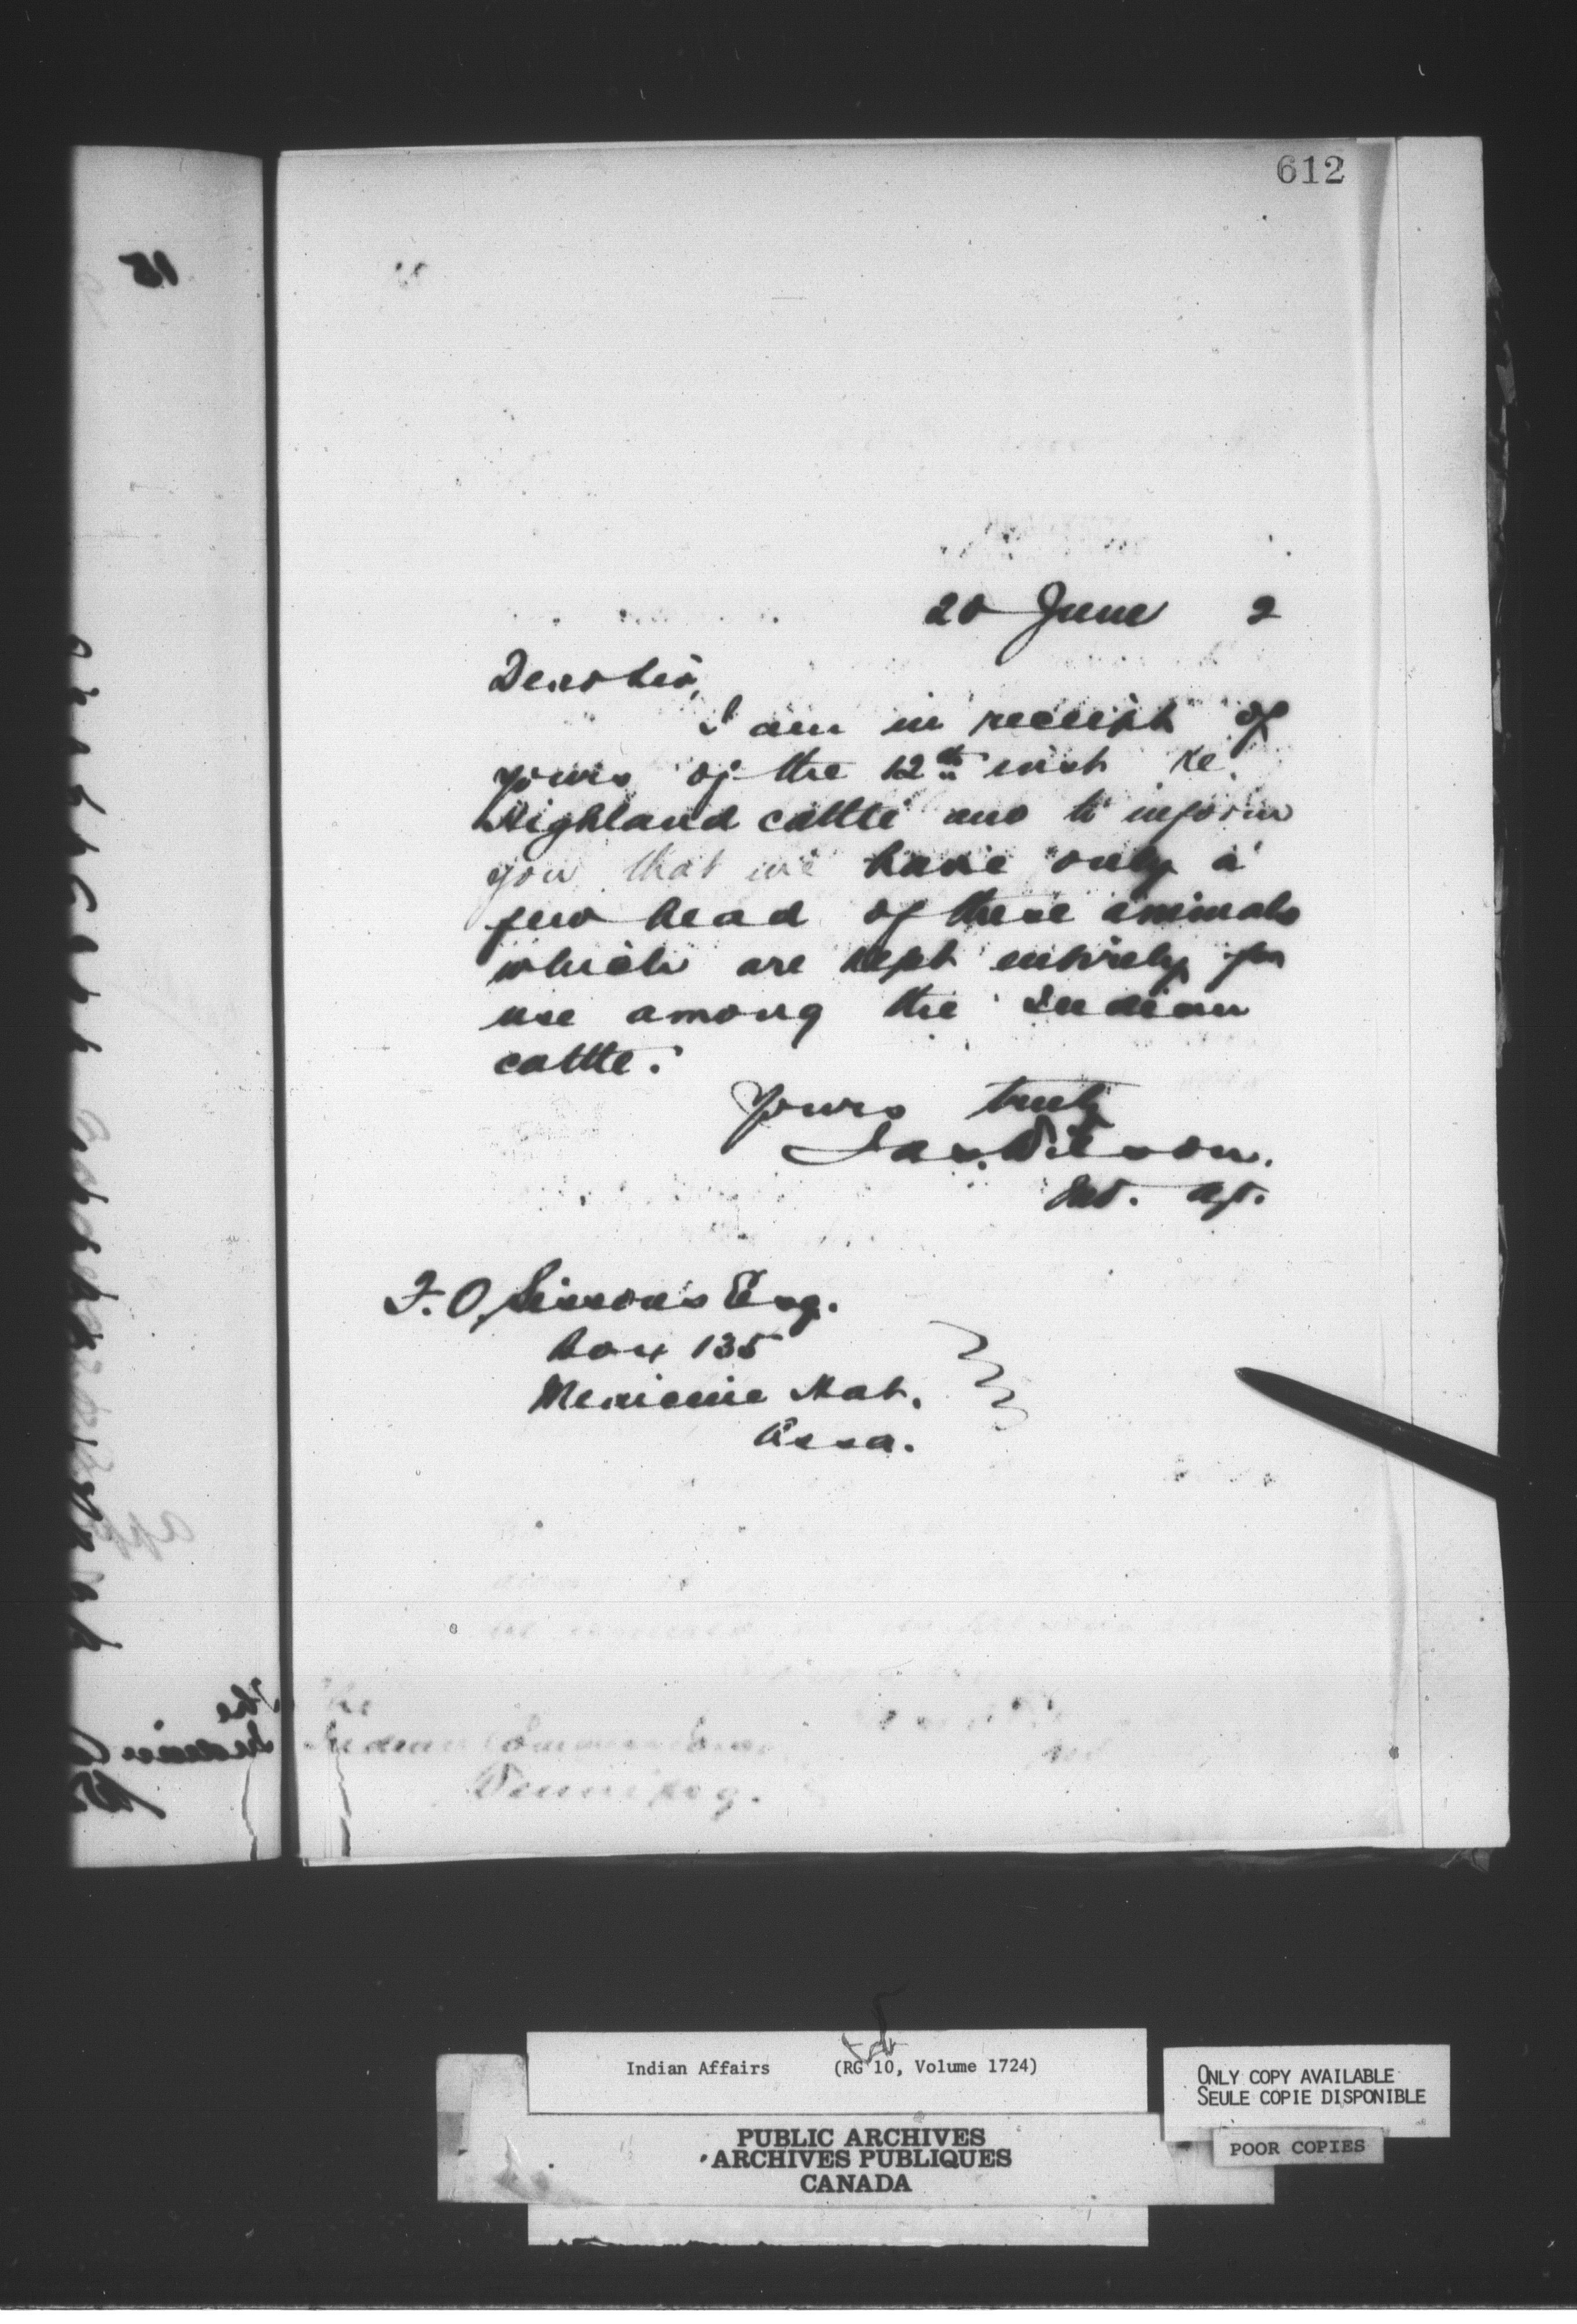 612
15
20 June 2
Dear Sir,
I am in receipt of
yours of the 12th inst re
Highland cattle and to inform
you that we have only a
few head of these animals
which are kept entirely for
use among the Indian
cattle.
Yours truly
Jas. Wilson.
Ind. Agt.
F. O. Sissons Esq.
Box 135
Medicine Hat.
Assa.
The
Indian Commissioner
Winnipeg.
Indian Affairs (RG 10, Volume 1724)
PUBLIC ARCHIVES
ARCHIVES PUBLIQUES
CANADA
ONLY COPY AVAILABLE
SEULE COPIE DISPONIBLE
POOR COPIES